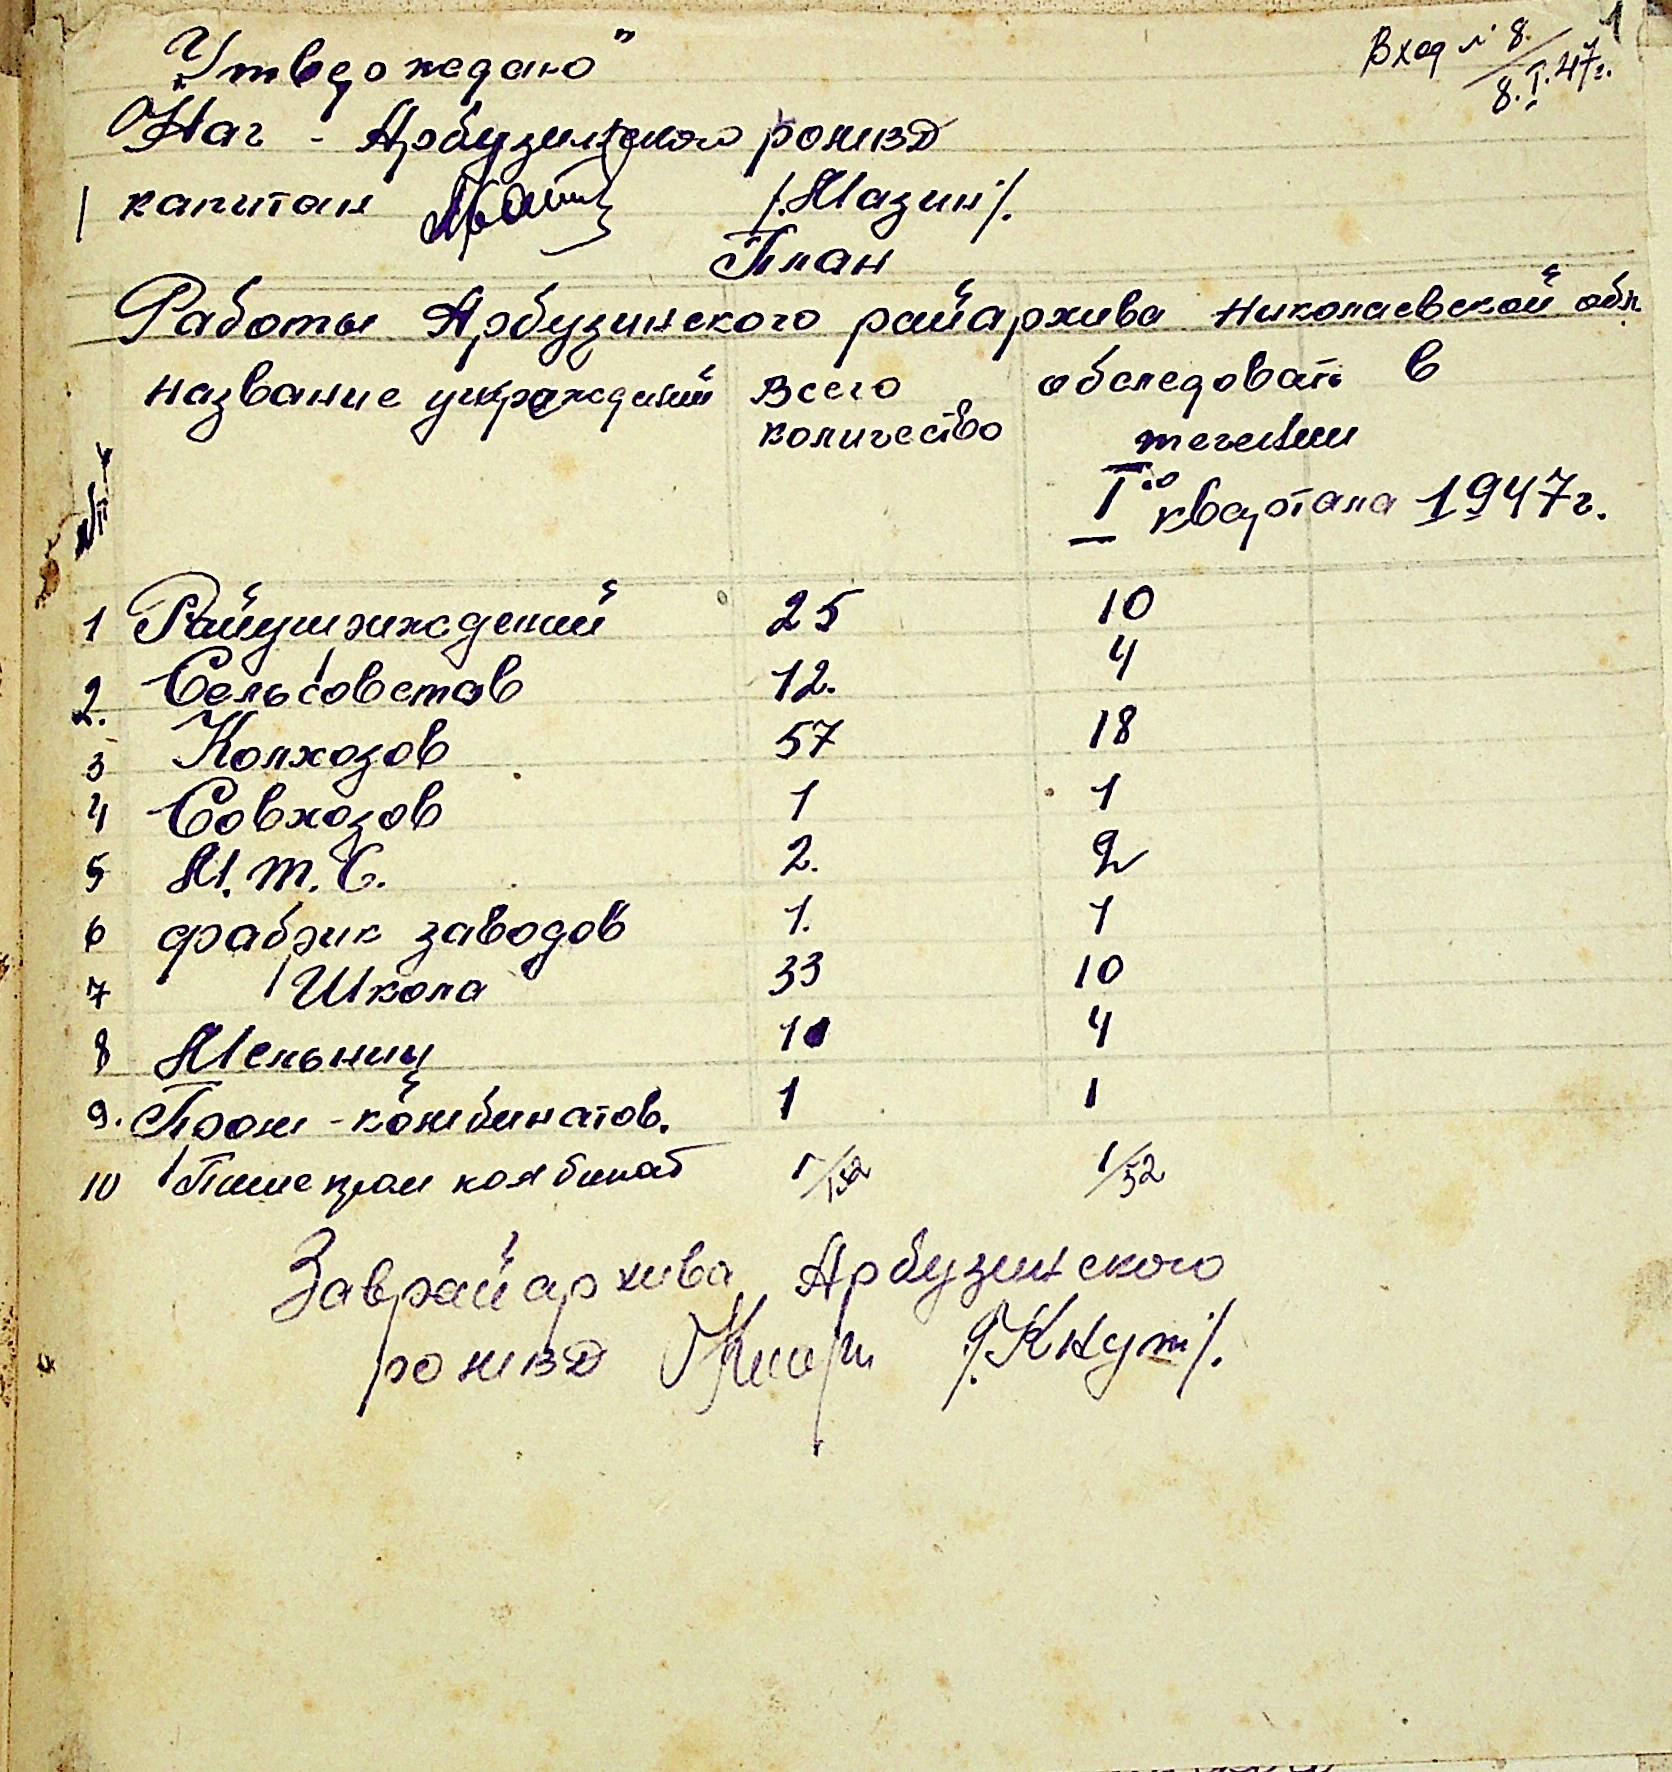 Вход № 8. 1
8.I.47г.
„Утверждаю"
Нач - Арбузинского РОМВД
капитан /.Мазин/.
План
Работы Арбузинского райархива Николаевской обл.
№ п название учреждений Всего количество обследовать в течении I го квартала 1947г.
1 Райучреждений 25 10
2. Сельсоветов 12. 4
3 Колхозов 57 18
4 Совхозов 1 1
5 М.Т.С. 2. 2
6 фабрик заводов 1. 1
7 Школа 33 10
8 Мельниц 4
9. Пром-комбинатов. 1 1
10 Пищепром комбинат 1/152 1/52
Заврайархива Арбузинского
РОМВД /.Кнут/.